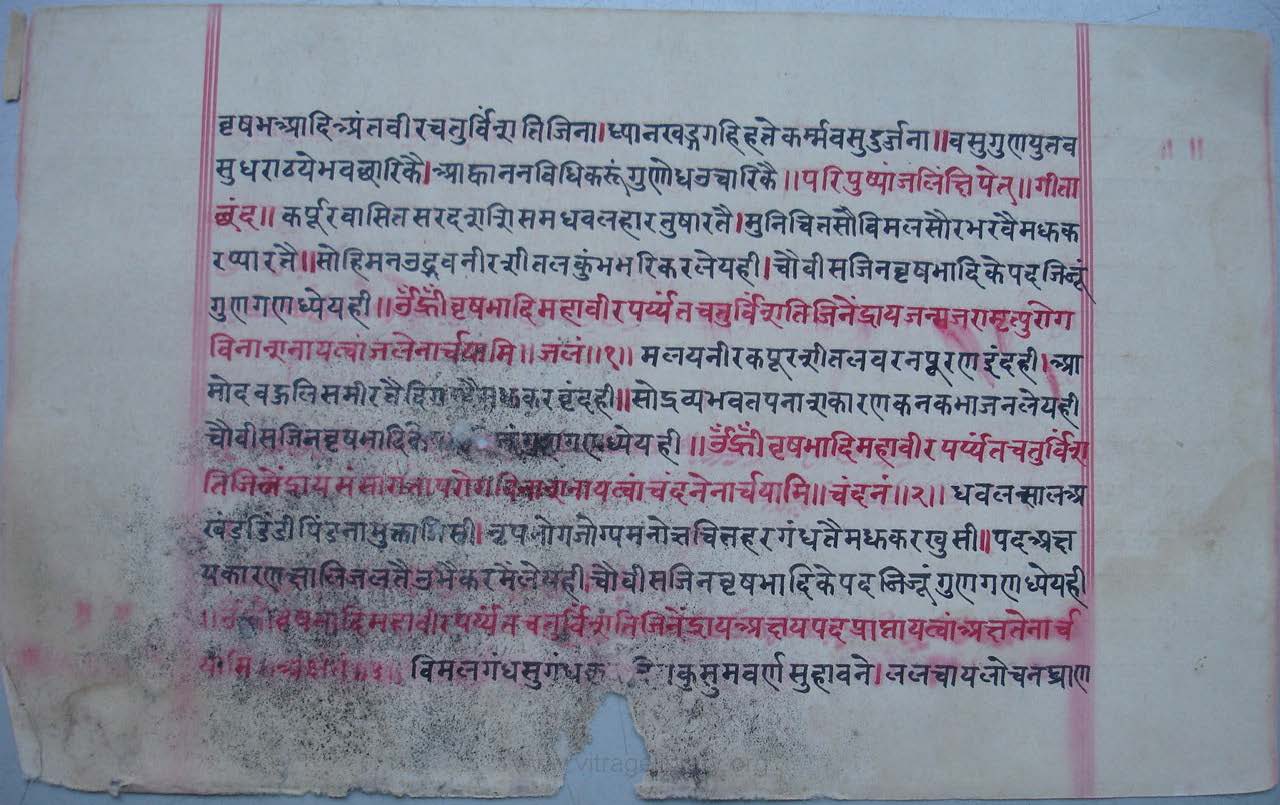 वृषभआदिअंतवीरचतुर्विंशतिजिना।ध्यानखड्गगहिहतेकर्म्मवसुदुर्जना॥वसुगुणयुतव
सुधराठयेभवछारिकै।आह्वाननविधिकरूंगुणोधउचारिकै॥परिपुष्पांजलिंक्षिपेत्॥गीता
छंद॥ कर्पूरवासितसरदशशिसमधवलहारतुषारतै।मुनिचितसौविमलसौरभरंवैमधुक
रप्यारतै॥सोहिमनउद्भवनीरशीतलकुंभभरिकरलेयही।चौवीसजिनवृषभादिकेपदजिजूं
गुणगणध्येयही॥ॐह्रीँवृषभादिमहावीरपर्य्यंतचतुर्विंशतिजिनेंद्रायजन्मजरामृत्युरोग
विनाशनायत्वांजलेनार्चयामि॥जलं॥१॥ मलयनीरकपूरशीतलवरनपूरणइंदही।आ
मोदवहुलिसमीरतै मधुकरवृंदही॥सोद्रव्यभवतपनाशकारणकनकभाजनलेयही
चौवीसजिनवृषभादिके गुणगणध्येयही॥ॐह्रीँवृषभादिमहावीरपर्य्यंतचतुर्विंश
तिजिनेंद्रायसंसारतापरोगविनाशनायत्वांचंदनेनार्चयामि॥चंदनं॥२॥ धवलसालअ
खंडडिंडीपिंडतामुक्ता सी।नृपभोगजोग्यमनोज्ञचितहरगंधतैमधुकरखुसी॥पदअक्ष
यकारणक्षालिजलतैउभैकरमैंलेयही।चौवीसजिनवृषभादिकेपदजिजूंगुणगणध्येयही
॥ॐह्रीँवृषभादिमहावीरपर्य्यंतचतुर्विंशतिजिनेंद्रायअक्षयपदप्राप्तायत्वांअक्षतेनार्च
यामि विमलगंधसुगंध ।कुसुमवर्णसुहावने।ललचायलोचनघ्राण